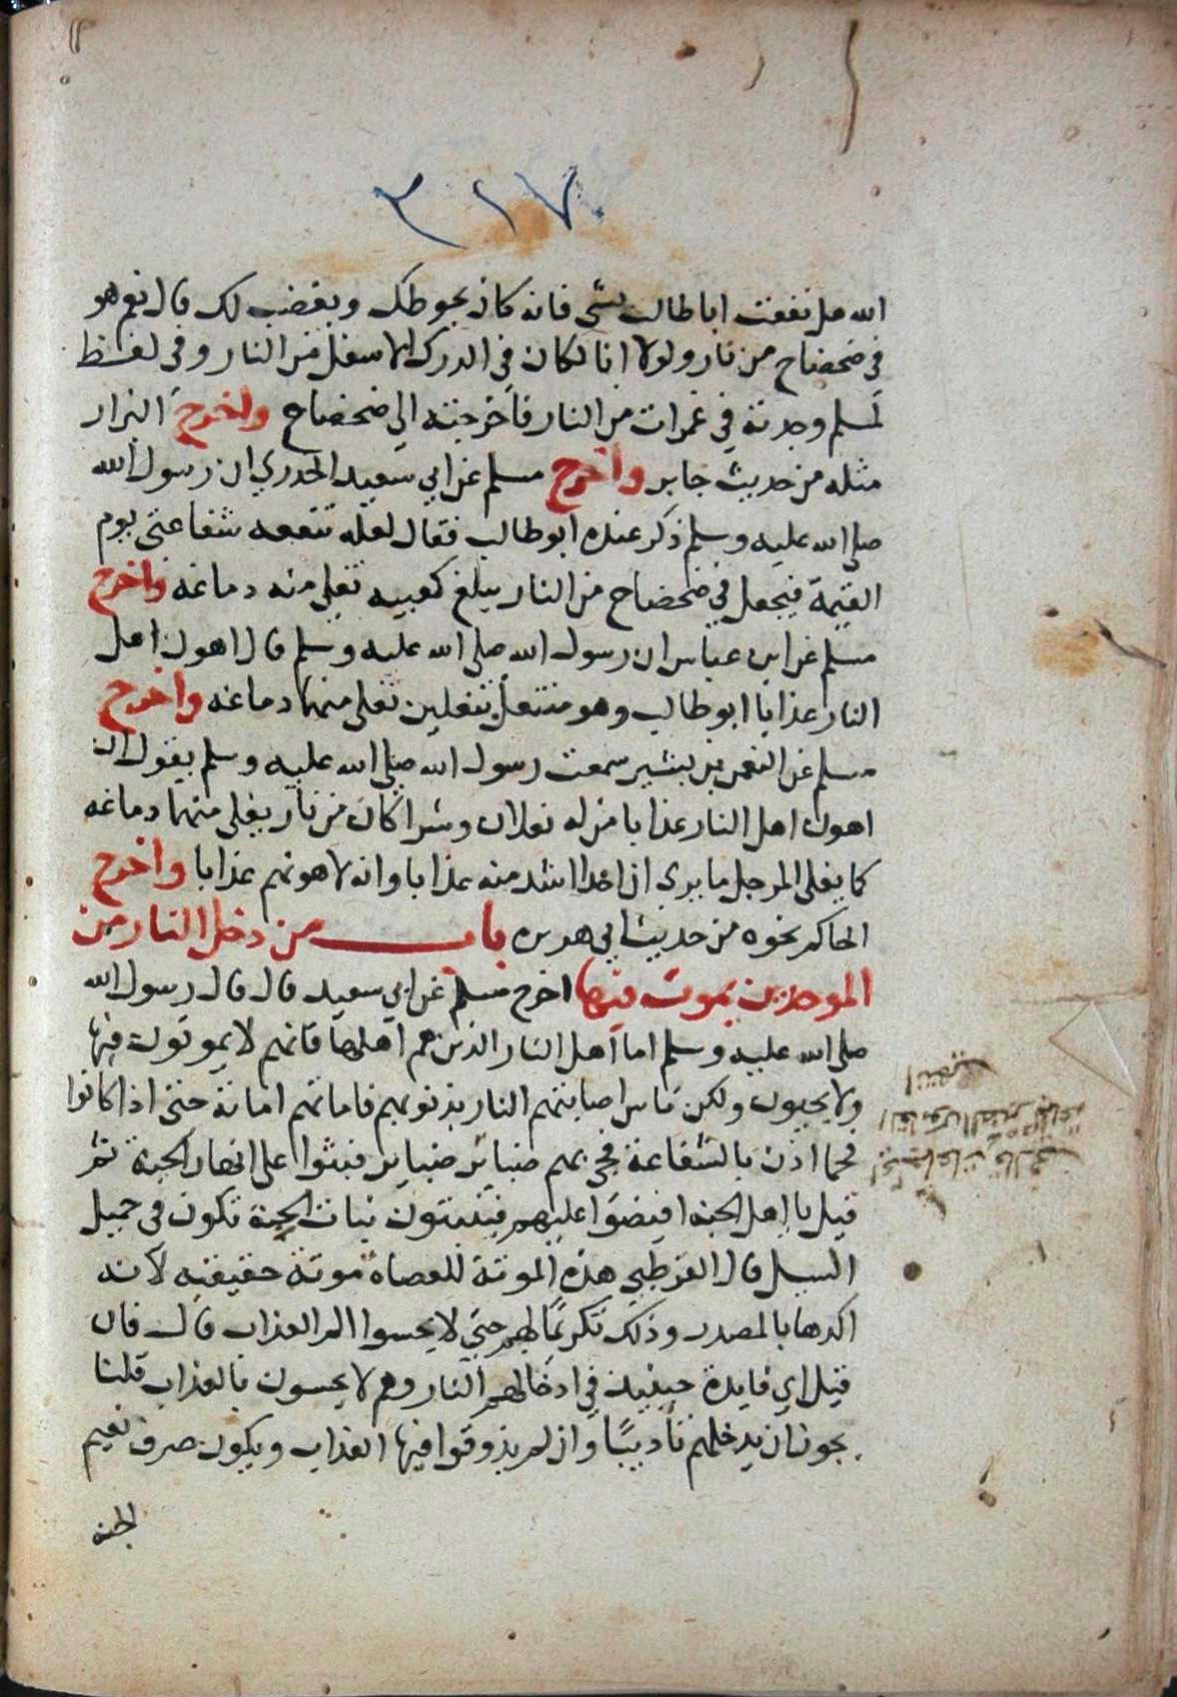 ٢١٧
الله هل نفعت اباطالب بشي فانه كان يحوطك ويغضب لك قال نعم هو
في ضحضاح من نار ولولا انا لكان في الدرك الاسفل من النار وفي لفظ
لمسلم وجدته في غمرات من النار فاخرجته الي ضحضاح واخرج البزار
مثله من حديث جابر واخرج مسلم عن ابي سعيد الخدري ان رسول الله
صلي الله عليه وسلم ذكر عنده ابوطالب فقال لعله تنفعه شفاعتي يوم
القيمة فيجعل في ضحضاح من النار يبلغ كعبيه تغلي منه دماغه واخرج
مسلم عن ابن عباس ان رسول الله صلي الله عليه وسلم قال اهون اهل
النار عذابا ابوطالب وهو منتعل بنعلين تغلي منهما دماغه واخرج
مسلم عن النعمن بن بشير سمعت رسول الله صلي الله عليه وسلم يقول ان
اهون اهل النار عذابا من له نعلان وشراكان من نار يغلي منهما دماغه
كما يغلي المرجل ما يري ان احدا اشد منه عذابا وانه لاهونهم عذابا واخرج
الحاكم نحوه من حديث ابي هريره باب من دخل النار من
الموحدين يموت فيها اخرج مسلم عن ابي سعيد قال قال رسول الله
صلي الله عليه وسلم اما اهل النار الذين هم اهلها فانهم لا يموتون فيها
ولا يحيون ولكن ناس اصابتهم النار بذنوبهم فاماتهم اماتة حتي اذا كانوا
فحما اذن بالشفاعة فجي بهم ضباير ضباير فبثوا علي انهار الجنة ثم
قيل يا اهل الجنه افيضوا عليهم فينبتون نبات الحبة تكون في حميل
السيل قال القرطبي هذه الموتة للعصاة موتة حقيقيه لانه
اكدها بالمصدر وذلك تكريمًا لهم حتي لا يحسوا الم العذاب قال فان
قيل اي فايدة حينيذ في ادخالهم النار وهم لا يحسون بالعذاب قلنا
يجوز ان يدخلهم تأديبًا وان لم يذوقوا فيها العذاب ويكون صرف نعيم
الجنه